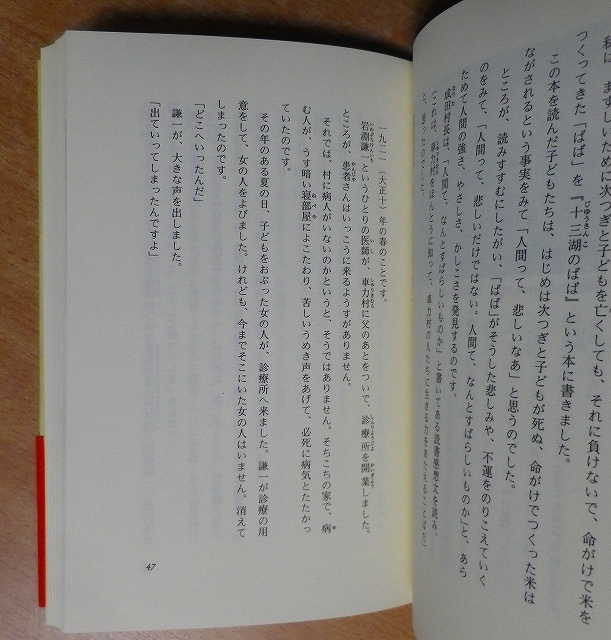 私は、まずしいために次つぎと子どもを亡くしても、それに負けないで、命がけで米を
つくってきた「ばば」を『十三湖のばば』という本に書きました。
この本を読んだ子どもたちは、はじめは次つぎと子どもが死ぬ、命がけでつくった米は
ながされるという事実をみて「人間って、悲しいなあ」と思うのでした。
ところが、読みすすむにしたがい、「ばば」がそうした悲しみや、不運をのりこえていく
のをみて、「人間って、悲しいだけではない。人間て、なんとすばらしいものか」と、あら
ためて人間の強さ、やさしさ、かしこさを発見するのです。
成田村長は、「人間て、なんとすばらしいものか」と書いてある読書感想文を読み、
（これは、車力村をほんとうに知って、車力村の人たちに生きる力をあたえることばだ）
と、思ったのでした。
一九二一（大正十）年の春のことです。
岩淵謙一というひとりの医師が、車力村に父のあとをついで、診療所を開業しました。
ところが、患者さんはいっこうに来るようすがありません。
それでは、村に病人がいないのかというと、そうではありません。そちこちの家で、病
む人が、うす暗い寝部屋によこたわり、苦しいうめき声をあげて、必死に病気とたたかっ
ていたのです。
その年のある夏の日、子どもをおぶった女の人が、診療所へ来ました。謙一が診療の用
意をして、女の人をよびました。けれども、今までそこにいた女の人はいません。消えて
しまったのです。
「どこへいったんだ」
謙一が、大きな声を出しました。
「出ていってしまったんですよ」
47